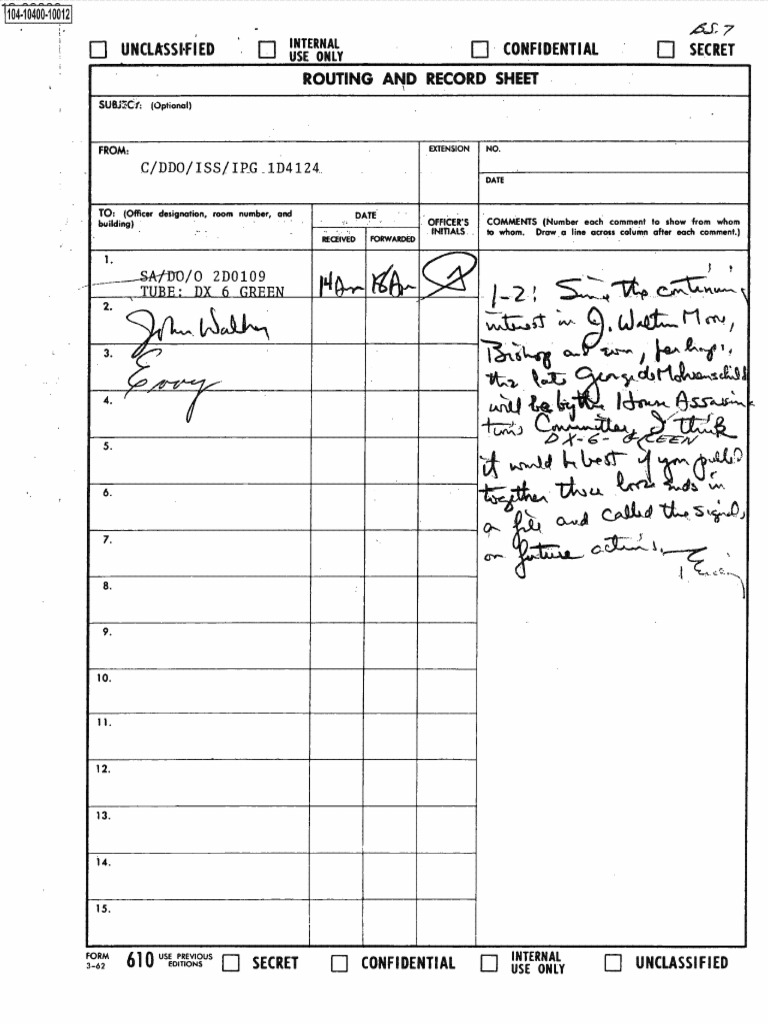 104-10400-10012
BS. 7
UNCLASSIFIED INTERNAL USE ONLY CONFIDENTIAL SECRET
ROUTING AND RECORD SHEET
SUBJECT: (Optional)
FROM:
C/DDO/ISS/IPG 1D4124
EXTENSION
NO.
DATE
TO: (Officer designation, room number, and
building)
DATE
RECEIVED FORWARDED
OFFICER'S
INITIALS
COMMENTS (Number each comment to show from whom
to whom. Draw a line across column after each comment.)
1.
SA/DO/O 2D0109
TUBE: DX 6 GREEN
14 18
2.
John
3.
4.
5.
6.
7.
8.
9.
10.
11.
12.
13.
14.
15.
1-2: Since the continuing
interest in J. Walton Moore,
Bishop and even, perhaps,
the late George deMohrenschild
will be by the House Assassina
tions Committee, I think
DX-6-GREEN
it would be best if you pulled
together these loose ends in
a file and called the signals
on future actions.
FORM
3-62
610 USE PREVIOUS
EDITIONS
SECRET CONFIDENTIAL INTERNAL USE ONLY UNCLASSIFIED